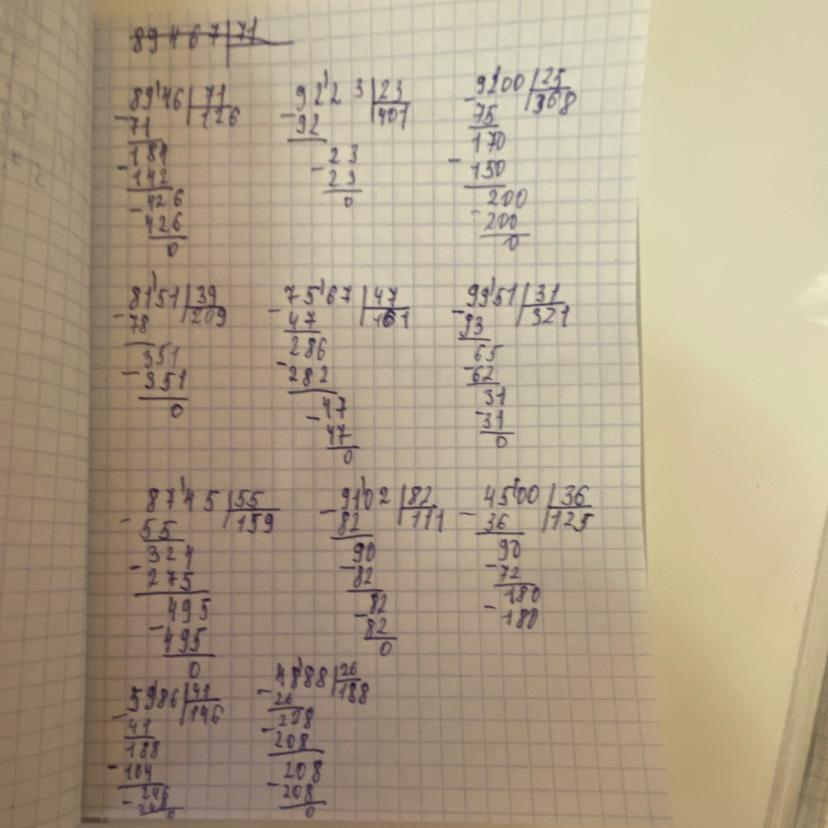 89467 71
8946 71
- 71 126
184
- 142
- 426
426
0
9223 23
- 92 401
- 23
23
0
9200 25
- 75 368
170
- 150
200
- 200
0
8151 39
- 78 209
351
- 351
0
7567 47
- 47 161
286
- 282
- 47
47
0
9951 31
- 93 321
65
- 62
31
- 31
0
8745 55
- 55 159
324
- 275
495
- 495
0
9102 82
- 82 111
90
- 82
- 82
82
0
4500 36
- 36 125
90
- 72
180
- 180
5986 41
- 41 146
188
- 164
- 246
246
0
4888 26
- 26 188
228
- 208
208
- 208
0